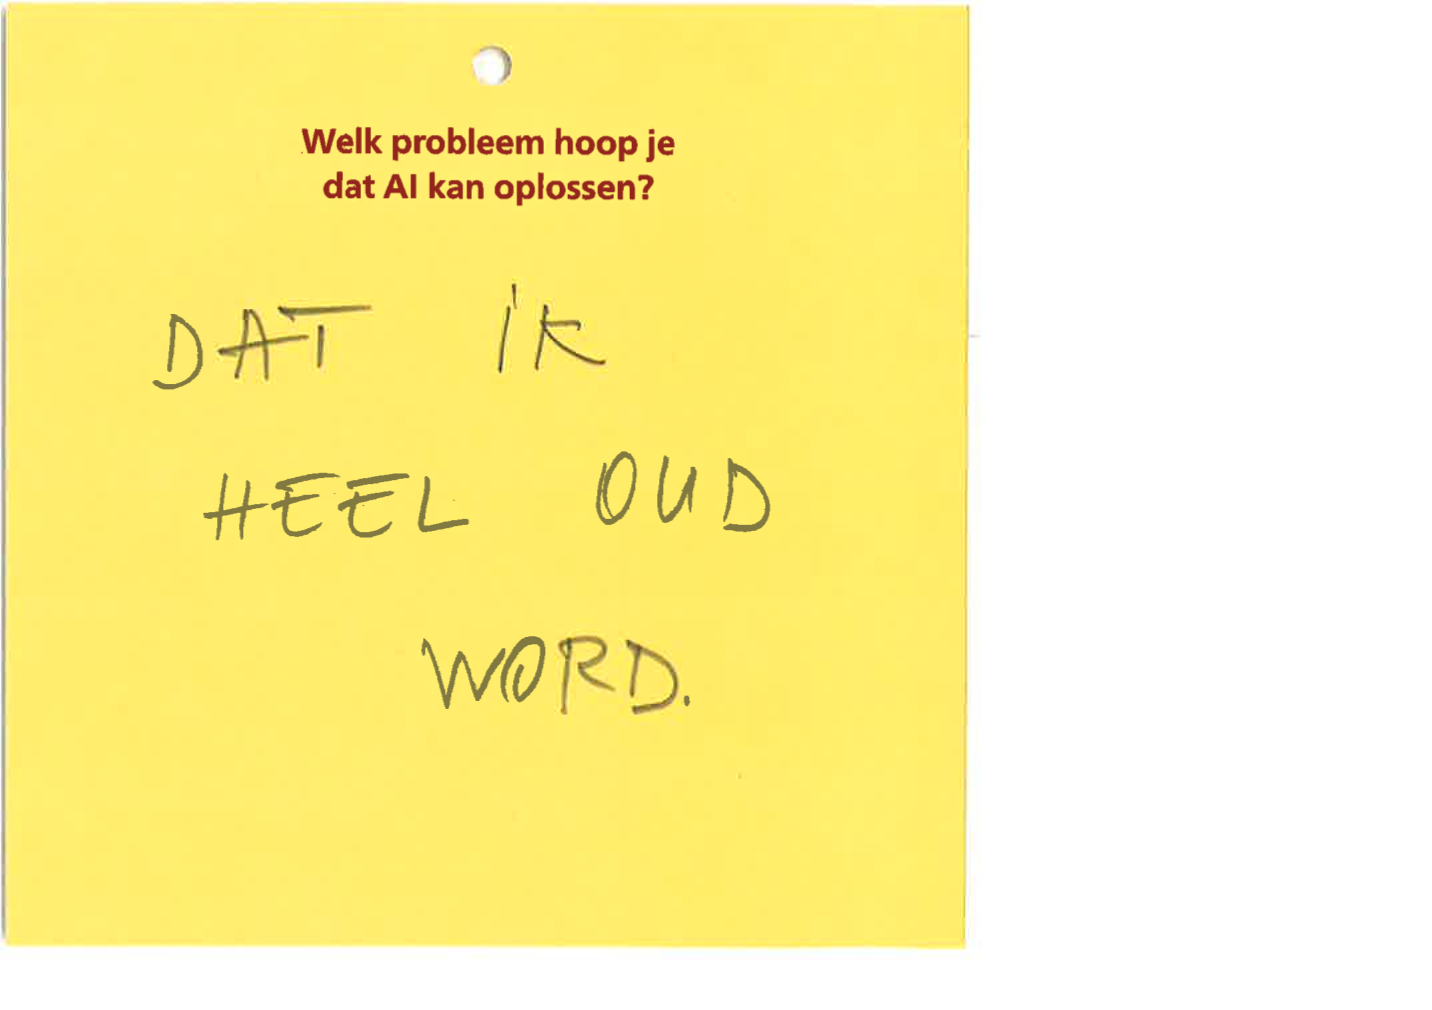 Welk probleem hoop je
dat AI kan oplossen?
DAT IK
HEEL OUD
WORD.